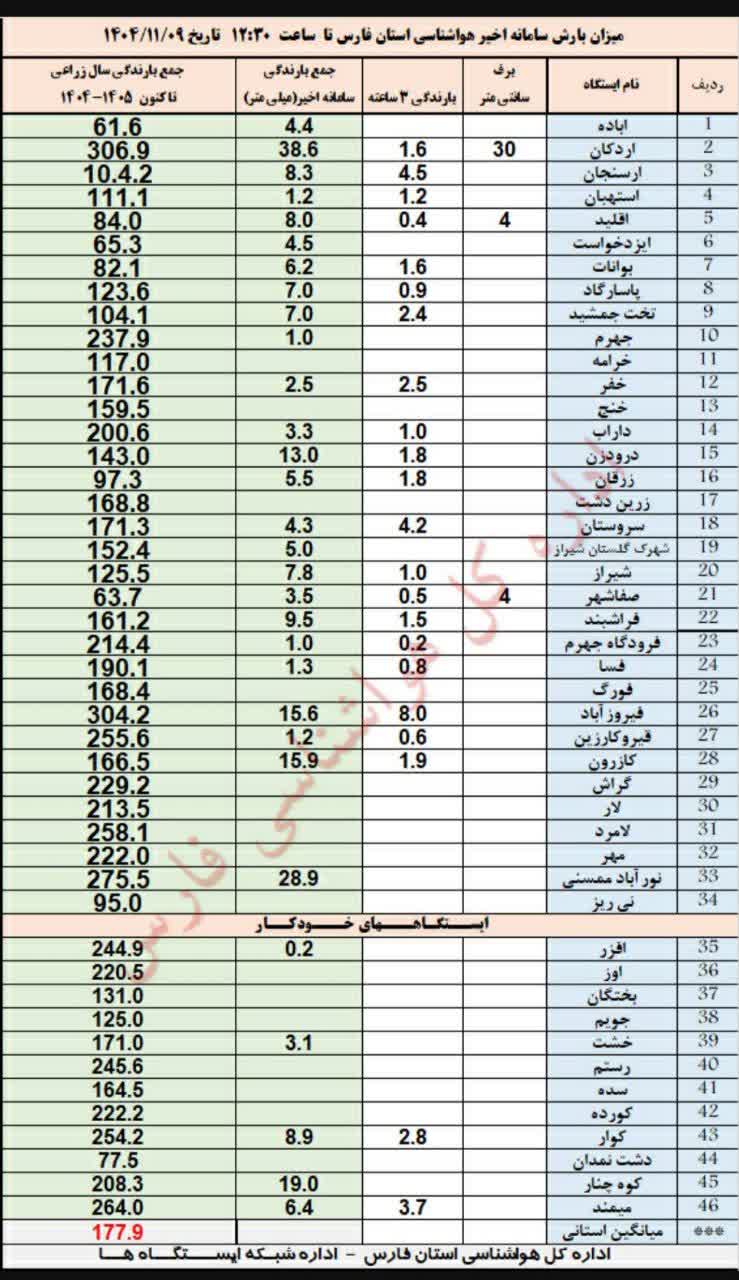 میزان بارش سامانه اخیر هواشناسی استان فارس تا ساعت ۱۲:۳۰ تاریخ ۱۴۰۴/۱۱/۰۹
ردیف نام ایستگاه برف سانتی متر بارندگی ۳ ساعته جمع بارندگی سامانه اخیر(میلی متر) جمع بارندگی سال زراعی تاکنون ۱۴۰۵-۱۴۰۴
1 اباده 4.4 61.6
2 اردکان 30 1.6 38.6 306.9
3 ارسنجان 4.5 8.3 10.4.2
4 استهبان 1.2 1.2 111.1
5 اقلید 4 0.4 8.0 84.0
6 ایزدخواست 4.5 65.3
7 بوانات 1.6 6.2 82.1
8 پاسارگاد 0.9 7.0 123.6
9 تخت جمشید 2.4 7.0 104.1
10 جهرم 1.0 237.9
11 خرامه 117.0
12 خفر 2.5 2.5 171.6
13 خنج 159.5
14 داراب 1.0 3.3 200.6
15 درودزن 1.8 13.0 143.0
16 زرقان 1.8 5.5 97.3
17 زرین دشت 168.8
18 سروستان 4.2 4.3 171.3
19 شهرک گلستان شیراز 5.0 152.4
20 شیراز 1.0 7.8 125.5
21 صفاشهر 4 0.5 3.5 63.7
22 فراشبند 1.5 9.5 161.2
23 فرودگاه جهرم 0.2 1.0 214.4
24 فسا 0.8 1.3 190.1
25 فورگ 168.4
26 فیروزآباد 8.0 15.6 304.2
27 قیروکارزین 0.6 1.2 255.6
28 کازرون 1.9 15.9 166.5
29 گراش 229.2
30 لار 213.5
31 لامرد 258.1
32 مهر 222.0
33 نورآباد ممسنی 28.9 275.5
34 نی ریز 95.0
ایستگاههای خودکار
35 افزر 0.2 244.9
36 اوز 220.5
37 بختگان 131.0
38 جویم 125.0
39 خشت 3.1 171.0
40 رستم 245.6
41 سده 164.5
42 کورده 222.2
43 کوار 2.8 8.9 254.2
44 دشت نمدان 77.5
45 کوه چنار 19.0 208.3
46 میمند 3.7 6.4 264.0
*** میانگین استانی 177.9
اداره کل هواشناسی استان فارس - اداره شبکه ایستگاه ها
اداره کل هواشناسی فارس